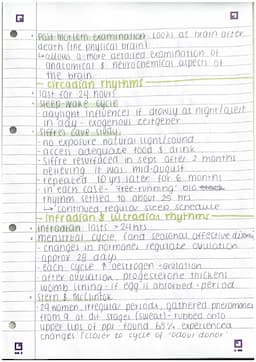 • Post mortem examination looks at brain after
death (the physical brain)
↳ allows a more detailed examination of
anatomical & neurochemical aspects of
the brain
- circadian rhythms -
• last for 24 hours
• sleep wake cycle
- daylight influences if drowsy at night/alert
in day - exogenous zeitgeber
• Siffre's cave study
- no exposure natural light/sound
- access adequate food & drink
- Siffre resurfaced in sept after 2 months
believing it was mid-august
- repeated 10 yrs later for 6 months
in each case - 'free-running' bio
rhythm settled to about 25 hrs
↳ continued regular sleep schedule
- Infradian & ultradian rhythms -
• infradian lasts >24hrs
• menstrual cycle (and seasonal affective
- changes in hormones regulate ovulation
approx 28 days
- each cycle ↑ oestrogen → ovulation
- after ovulation, progesterone thickens
womb lining - if egg isn't absorbed - period
• Stern & McClintok
- 29 women, irregular periods, gathered pheromones
from 9 at dif stages (sweat) - rubbed onto
upper lips of ppl - found 68% experienced
changes (closer to cycle of 'odour donor'